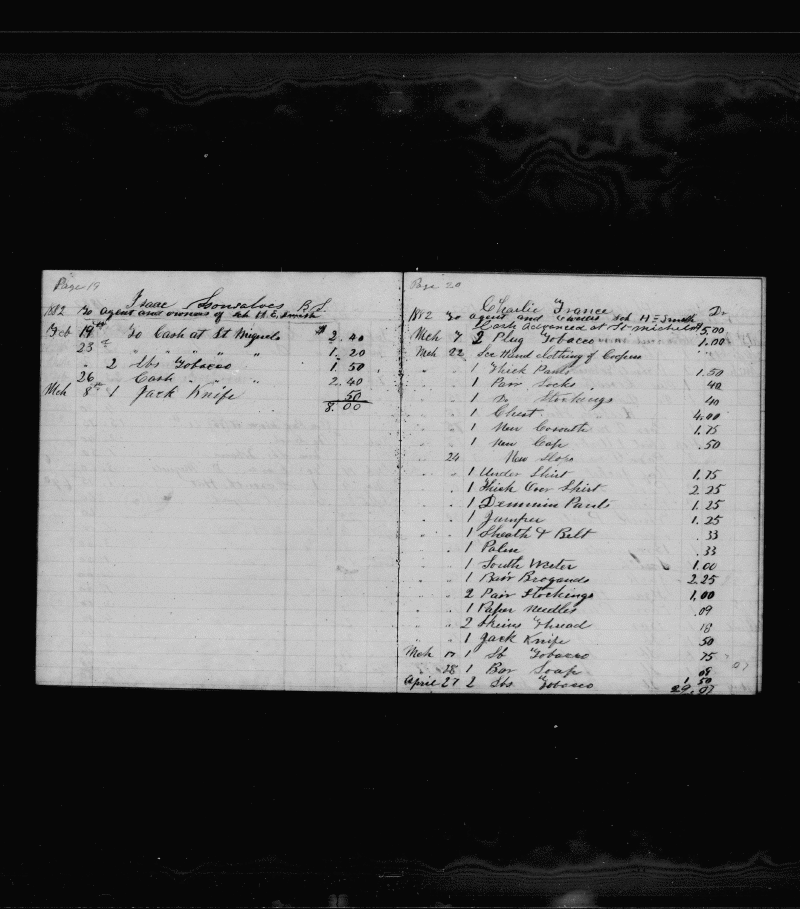 Page 19
Isaac Gonsalves B.S.
1882 To agent and owners of Sch H.E. Smith
Feb 19th To Cash at St Miguels $ 2.40
23 " " " " " 1.20
" 2 lbs Tobacco 1.50
26 Cash " " 2.40
Mch 8th 1 Jack Knife .50
8.00
Page 20
Charlie France Dr
1882 To agent and owners Sch H E Smith
Cash Advanced at St michels 5.00
Mch 7 2 Plug Tobacco 1.00
Mch 22 Sec Hand clothing of Coopers " "
" " 1 Thick Pants 1.50
" " 1 Pair Socks 40
" " 1 Do Stockings 40
" " 1 Chest 4.00
" " 1 New 1.75
" " 1 New Cap .50
" 24 New Slops
" " 1 Under Shirt 1.75
" " 1 Thick Over Shirt 2.25
" " 1 Demmin Pants 1.25
" " 1 Jumper 1.25
" " 1 Sheath & Belt .33
" " 1 Palm .33
" " 1 South Wester 1.00
" " 1 Pair Brogands 2.25
" " 2 Pair Stockings 1.00
" " 1 Paper Needles .09
" " 2 Skeins Thread 18
" " 1 Jack Knife 50
Mch 17 1 lb Tobacco 75
" 28 1 Bar Soap 09
April 27 2 lbs Tobacco 1.50
29.07